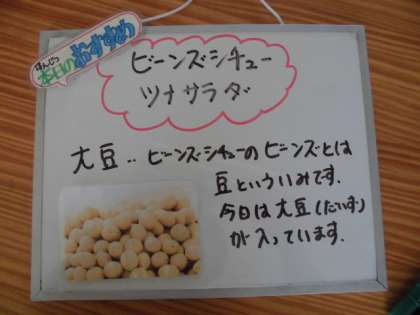 ほんじつ
本日のおすすめ
ビーンズシチュー
ツナサラダ
大豆‥ビーンズシチューのビーンズとは
豆といういみです.
今日は大豆(だいず)
が入っています.